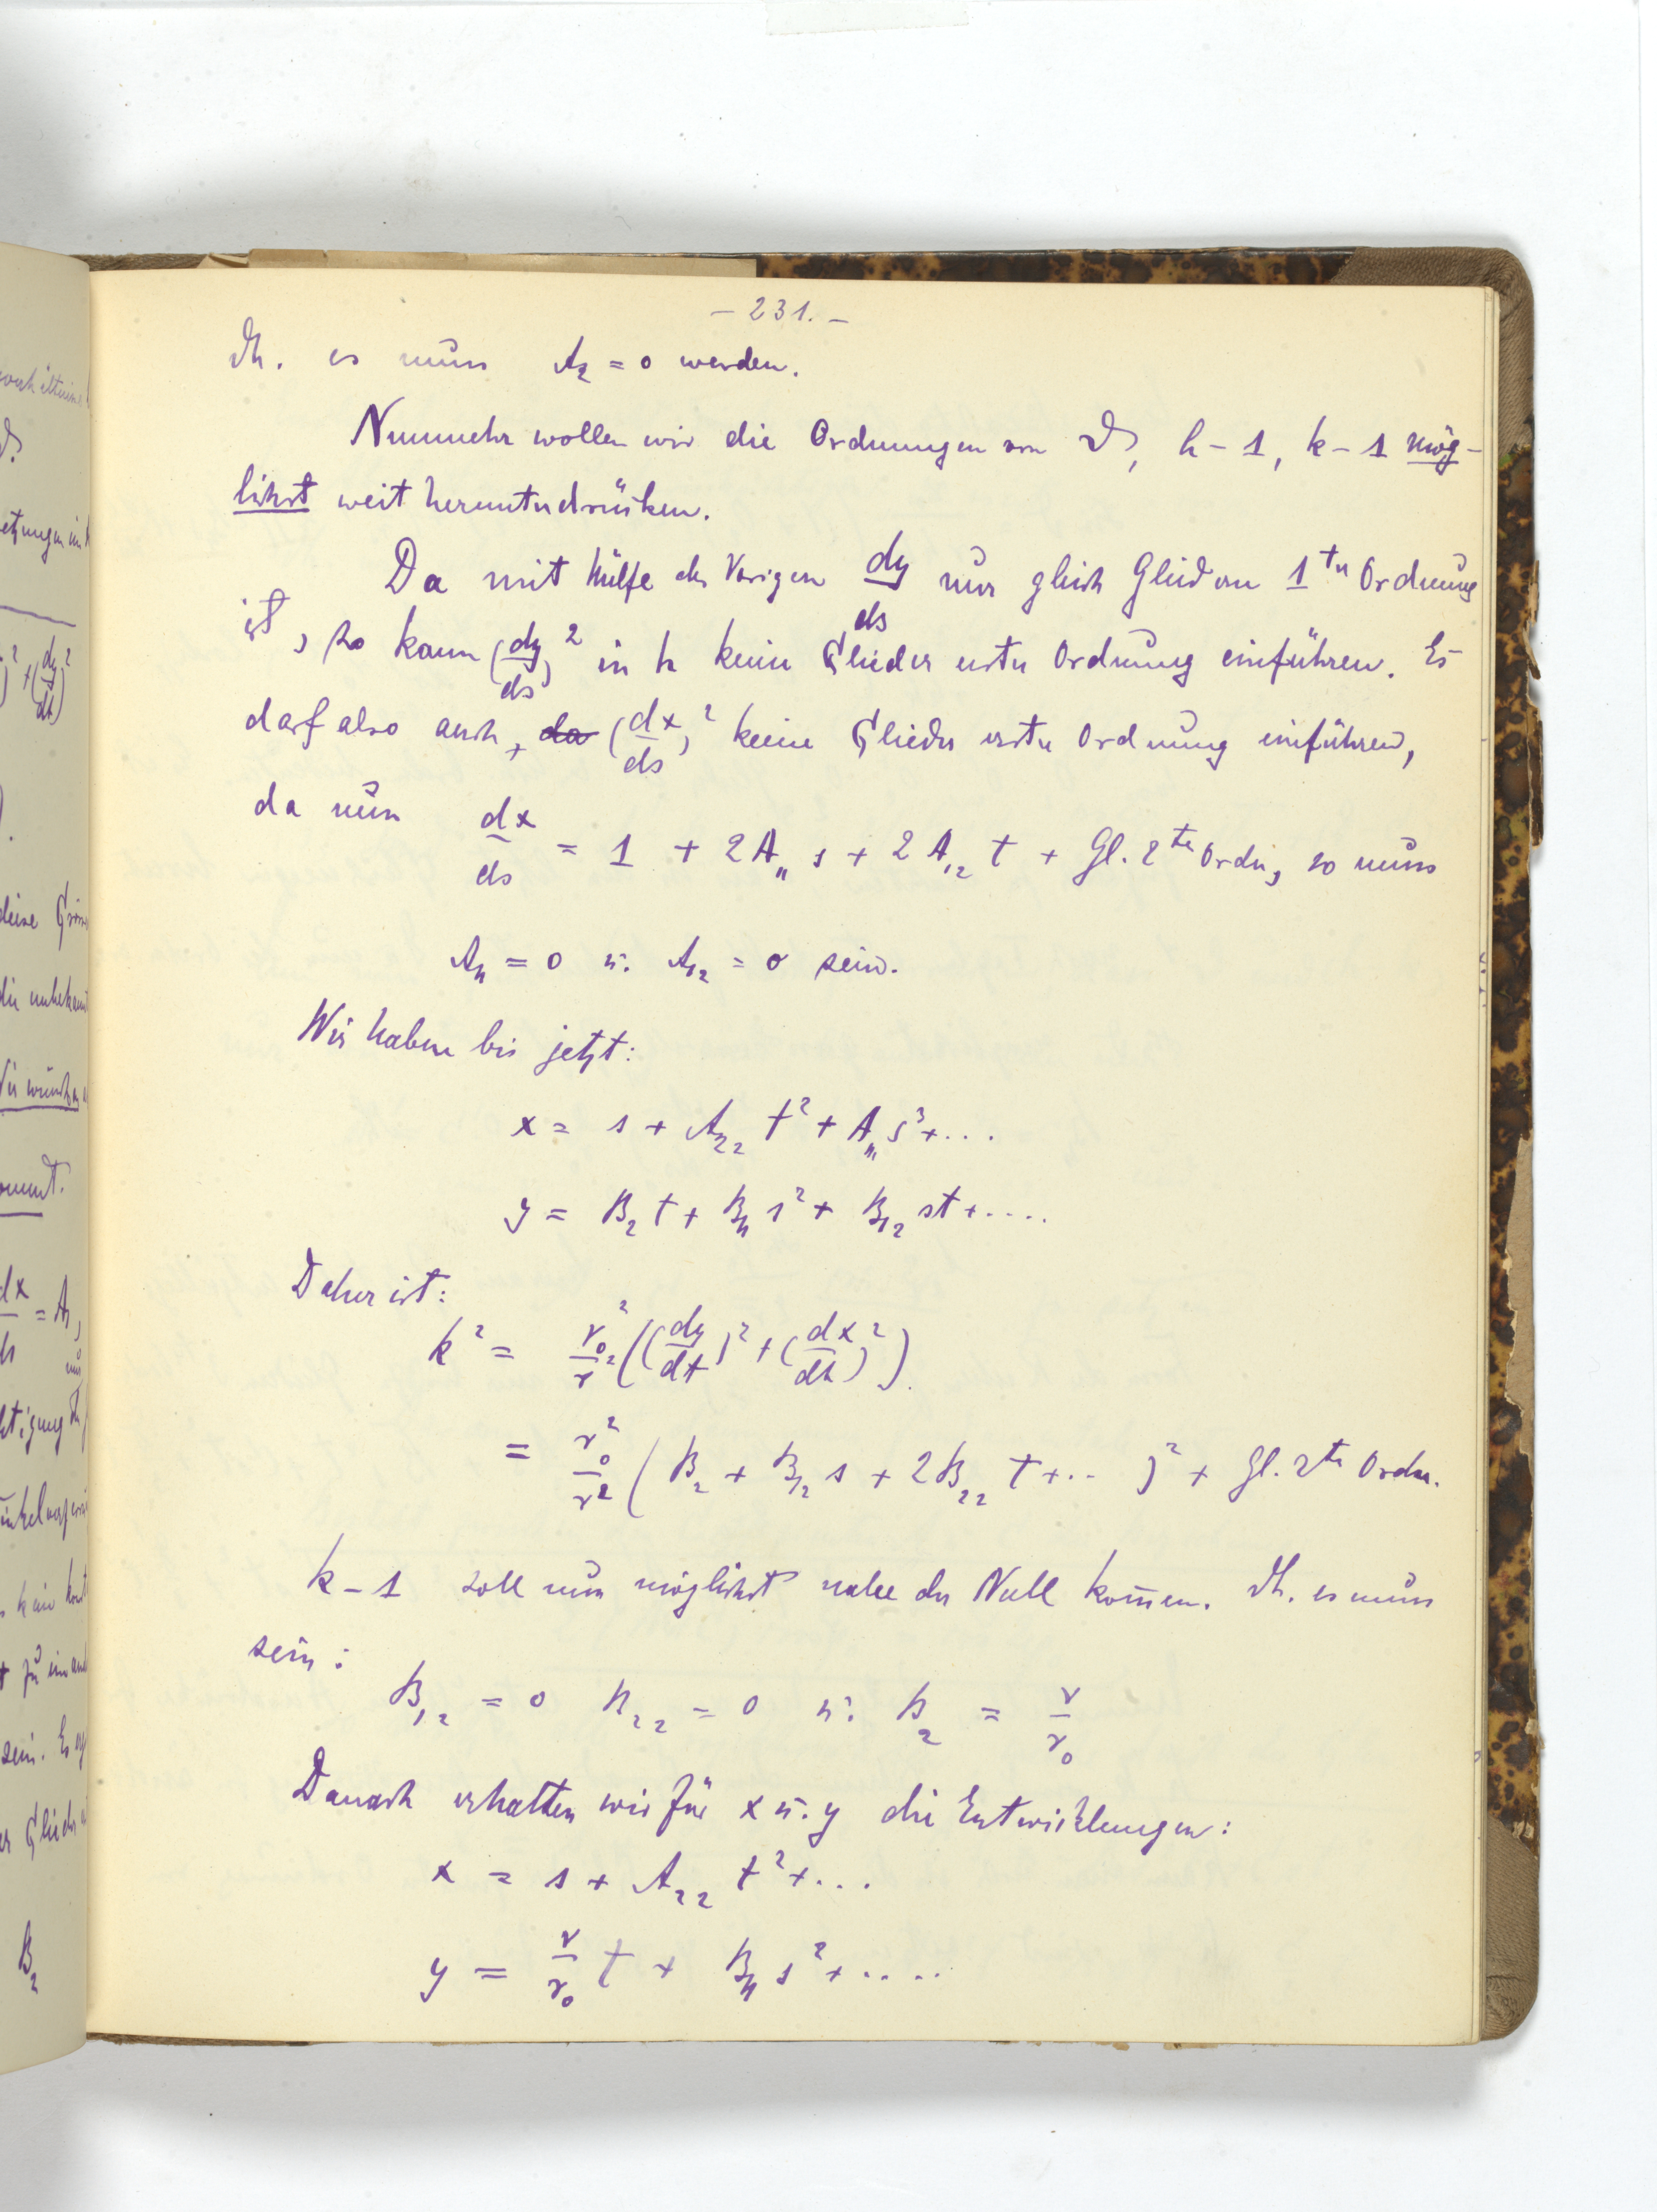 – 231. –
dh. es muss A₂ = 0 werden.
Nunmehr wollen wir die Ordnungen von ϑ, h – 1, k – 1 mög-
lichst weit herunterdrücken.
Da mit Hülfe des Vorigen dy/ds nur gleich Gliedern 1ter Ordnung
ist, so kann (dy/ds)² in h keine Glieder erster Ordnung einführen. Es
darf also auch, da (dx/ds)² keine Glieder erster Ordnung einführen,
da nun dx/ds = 1 + 2A₁₁ s + 2A₁₂ t + Gl. 2ter Ordn, so muss
A₁₁ = 0 u. A₁₂ = 0 sein.
Wir haben bis jetzt:
x = s + A₂₂ t² + A₁₁₁ s³ + ...
y = B₂ t + B₁₁ s² + B₁₂ st + ....
Daher ist:
k² = r₀²/r² ((dy/dt)² + (dx/dt)²).
= r₀²/r² (B₂ + B₁₂ s + 2B₂₂ t + .. )² + Gl. 2ter Ordn.
k – 1 soll nun möglichst nahe der Null kom̄en. dh. es muss
sein:
B₁₂ = 0 B₂₂ = 0 u. B₂ = r/r₀
Danach erhalten wir für x u. y die Entwicklungen:
x = s + A₂₂ t² + ...
y = r/r₀ t + B₁₁ s² + ....